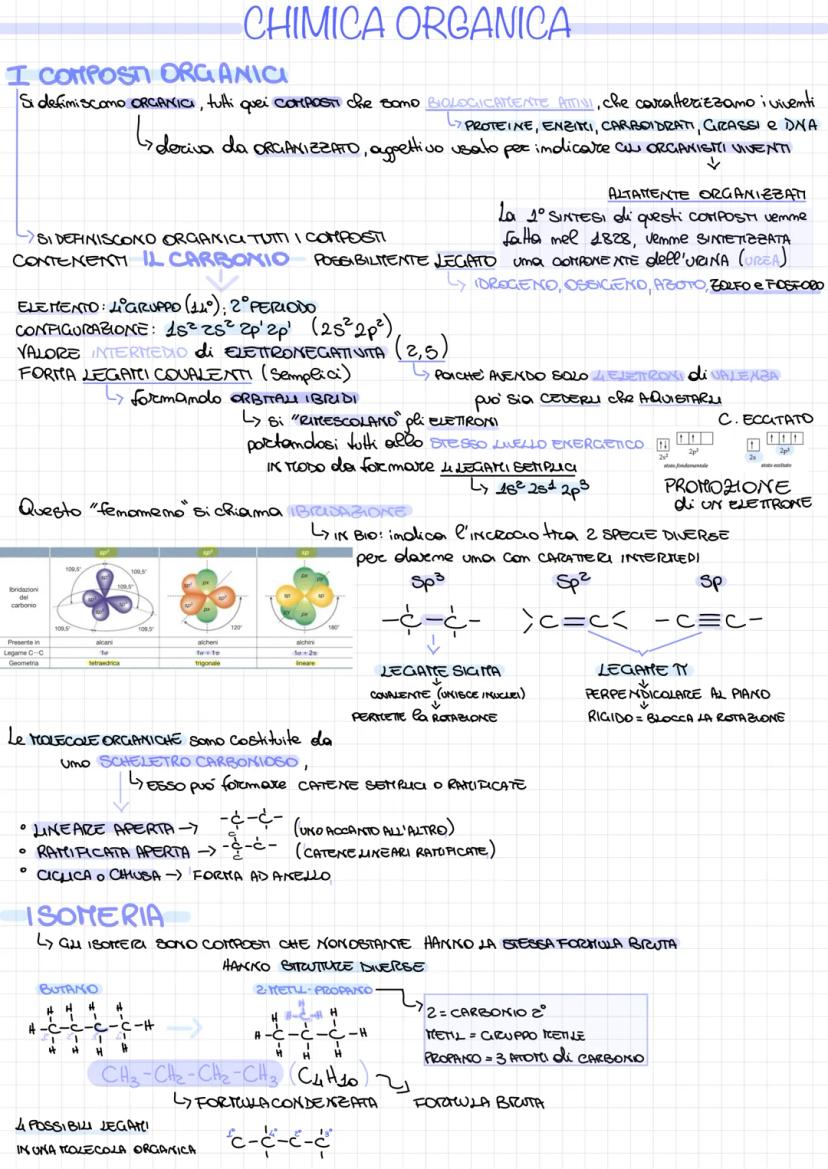 CHIMICA ORGANICA
I COMPOSTI ORGANICI
Si definiscono ORGANICI, tutti quei COMPOSTI che sono BIOLOGICAMENTE ATTIVI, che caratterizzano i viventi
↳ PROTEINE, ENZIMI, CARBOIDRATI, GRASSI e DNA
↳ deriva da ORGANIZZATO, aggettivo usato per indicare GLI ORGANISMI VIVENTI
↓
ALTAMENTE ORGANIZZATI
La 1° SINTESI di questi COMPOSTI venne
fatta nel 1828, venne SINTETIZZATA
una COMPONENTE dell'URINA (UREA)
→ SI DEFINISCONO ORGANICI TUTTI I COMPOSTI
CONTENENTI IL CARBONIO POSSIBILMENTE LEGATO
↳ IDROGENO, OSSIGENO, AZOTO, ZOLFO e FOSFORO
ELEMENTO: 4° GRUPPO (14°); 2° PERIODO
CONFIGURAZIONE: 1s² 2s² 2p¹ 2p¹ (2s² 2p²)
VALORE INTERMEDIO di ELETTRONEGATIVITA (2,5)
↳ POICHE' AVENDO SOLO 4 ELETTRONI di VALENZA
puo' sia CEDERLI che AQUISTARLI
FORMA LEGAMI COVALENTI (Semplici)
↳ formando ORBITALI IBRIDI
↳ Si "RIMESCOLANO" gli ELETTRONI
portandosi tutti allo STESSO LIVELLO ENERGETICO
IN MODO da formare 4 LEGAMI SEMPLICI
↳ 1s² 2s¹ 2p³
C. ECCITATO
2s² 2p² 2s 2p³
stato fondamentale stato eccitato
PROMOZIONE
di UN ELETTRONE
Questo "fenomeno" si chiama IBRIDAZIONE
↳ IN BIO: indica l'INCROCIO tra 2 SPECIE DIVERSE
per darne una con CARATTERI INTERMEDI
sp³ sp² sp
Ibridazioni
del
carbonio
109,5° 109,5° 109,5° 109,5° 109,5°
120°
180°
Presente in alcani alcheni alchini
Legame C–C 1σ 1σ + 1π 1σ + 2π
Geometria tetraedrica trigonale lineare
Sp³ Sp² Sp
-C-C- >C=C< -C≡C-
LEGAME SIGMA LEGAME π
COVALENTE (UNISCE I NUCLEI) PERPENDICOLARE AL PIANO
PERMETTE la ROTAZIONE RIGIDO = BLOCCA LA ROTAZIONE
Le MOLECOLE ORGANICHE sono costituite da
uno SCHELETRO CARBONIOSO,
↳ ESSO puo' formare CATENE SEMPLICI O RAMIFICATE
° LINEARE APERTA → -C-C- (UNO ACCANTO ALL'ALTRO)
° RAMIFICATA APERTA → -C-C- (CATENE LINEARI RAMIFICATE)
C
C
° CICLICA o CHIUSA → FORMA AD ANELLO
ISOMERIA
↳ GLI ISOMERI SONO COMPOSTI CHE NONOSTANTE HANNO LA STESSA FORMULA BRUTA
HANNO STRUTTURE DIVERSE
BUTANO 2-METIL-PROPANO
H H H H
H-C-C-C-C-H
H H H H
H
H-C-H
H H
H-C-C-C-H
H H H
2 = CARBONIO 2°
METIL = GRUPPO METILE
PROPANO = 3 ATOMI di CARBONIO
CH₃-CH₂-CH₂-CH₃ (C₄H₁₀)
↳ FORMULA CONDENZATA FORMULA BRUTA
4 POSSIBILI LEGAMI
IN UNA MOLECOLA ORGANICA
1° 4° 2° 3°
C-C-C-C